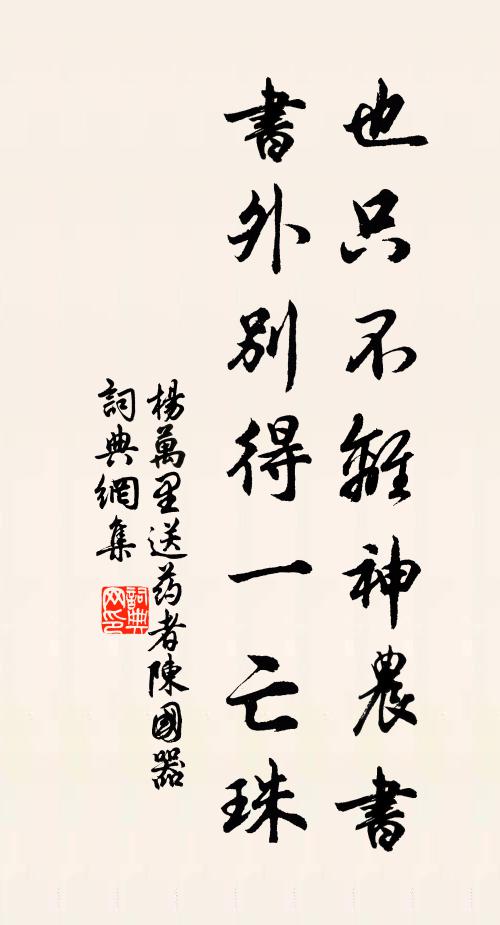 也只不離神農書
書外別得一亡珠
楊萬里送药者陳國器
詞典網集
詞典网印